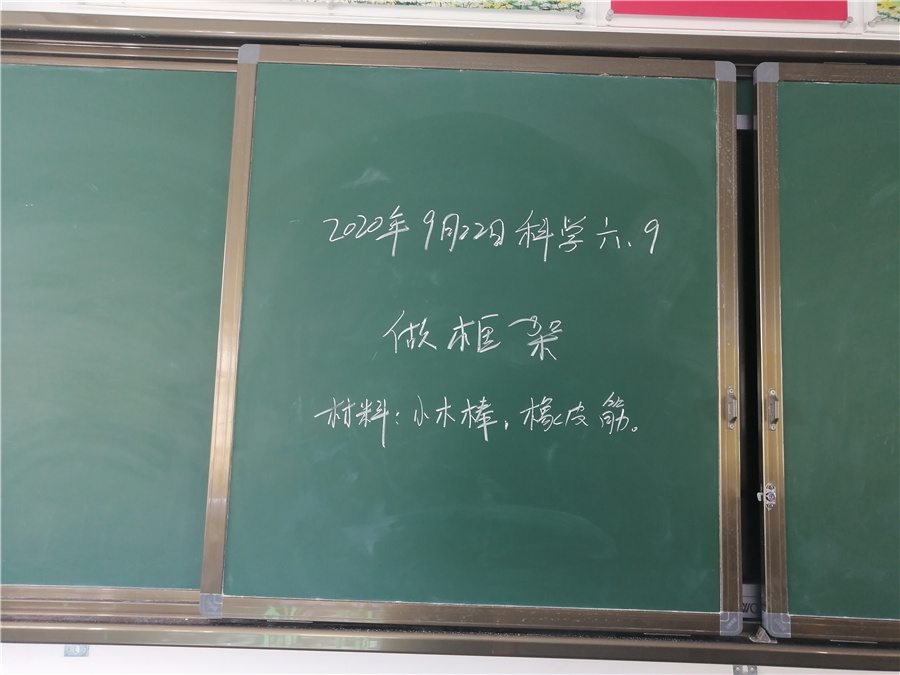 2020年9月22日科学六、9
做框架
材料:小木棒,橡皮筋。